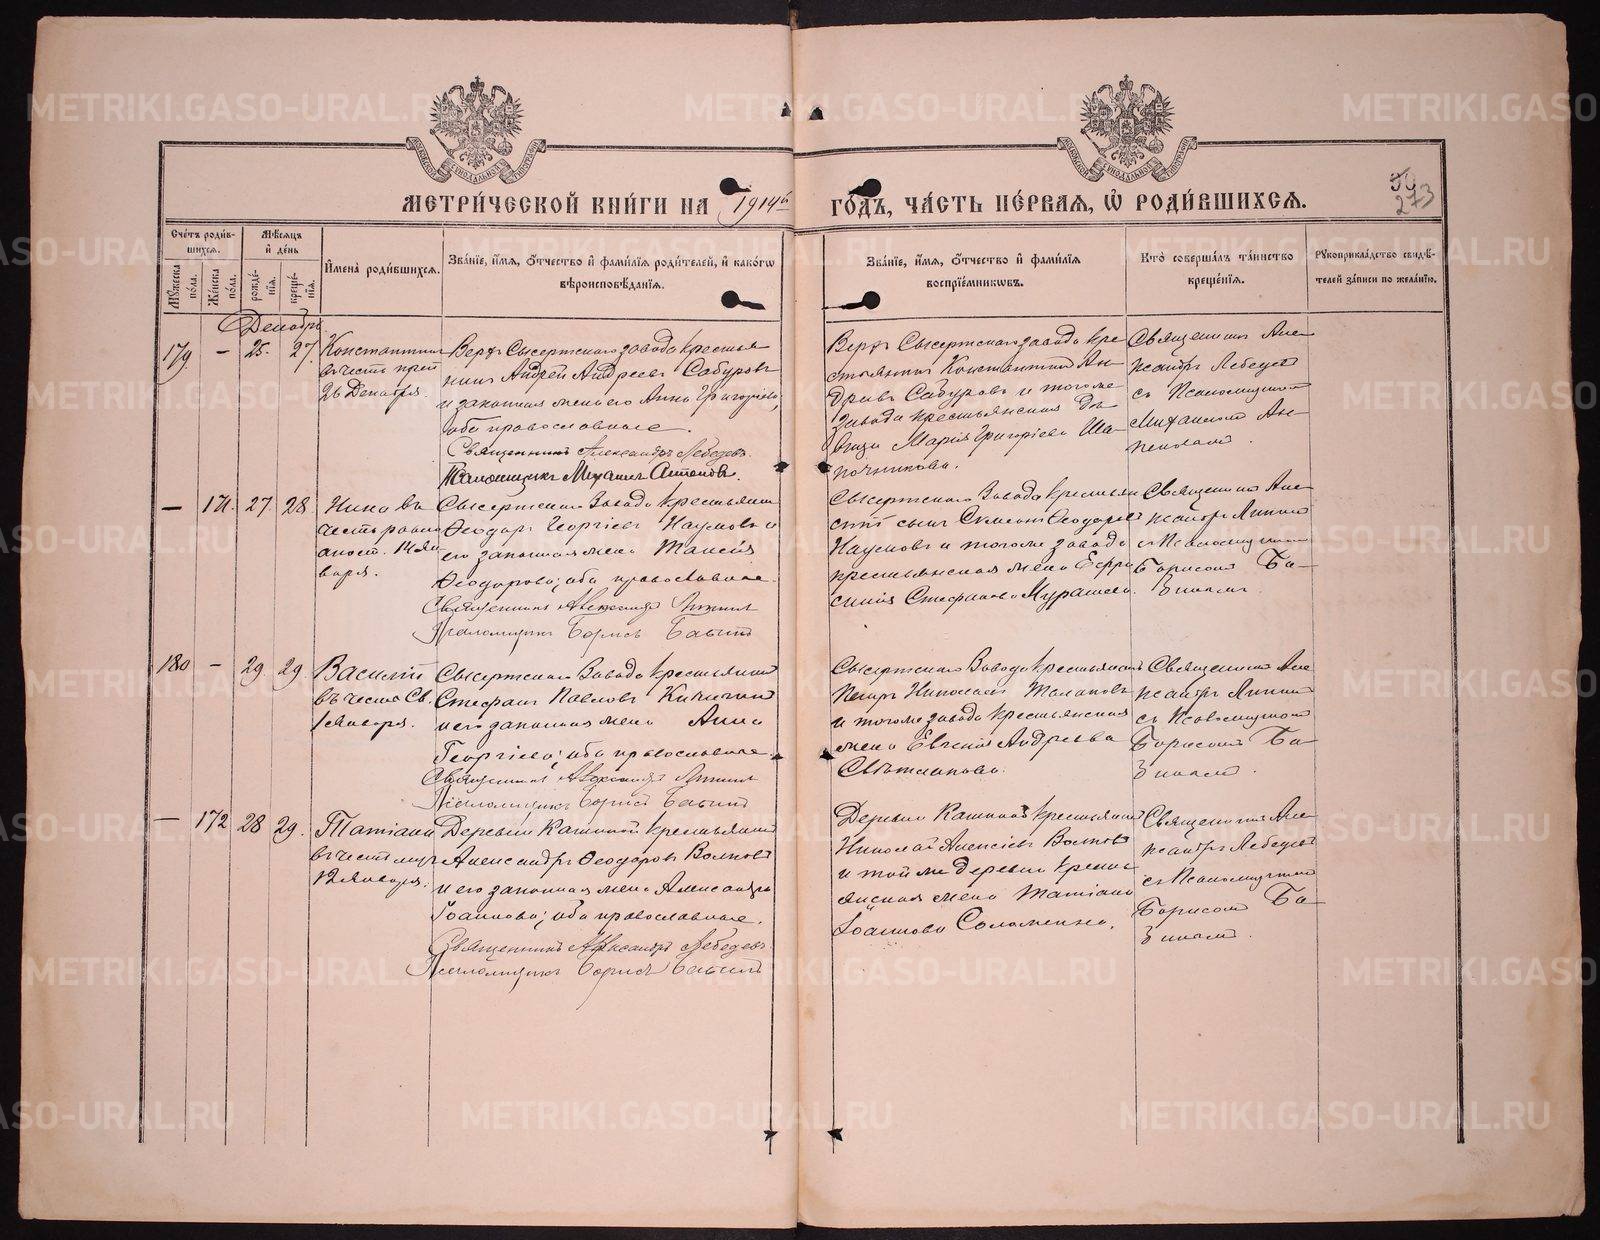 МЕТРИ́ЧЕСКОЙ КНИ́ГИ НА 1914й ГО́ДЪ, ЧА́СТЬ ПЕ́РВАЯ, Ѡ҆ РОДИ́ВШИХСЯ.
273
Сче́тъ роди́в-
шихся.
Мѣ́сяцъ
и҆ де́нь
Мꙋ́жеска
по́ла.
Же́нска
по́ла.
рожде́-
нїя.
креще́-
нїя.
И҆мена̀ роди́вшихся.
Зва́нїе, и҆́мя, ѻ҆́тчество и҆ фами́лїя роди́телей, и҆ како́гѡ
вѣроисповѣ́данїя.
Зва́нїе, и҆́мя, ѻ҆́тчество и҆ фами́лїя
воспрїе́мниковъ.
Кто̀ соверша́лъ та́инство
креще́нїя.
Рꙋкоприкла́дство свидѣ́-
телей за́писи по жела́нїю.
Декабрь
179. - 25. 27.
Константинъ
въ честь
26 Декабря.
Верхъ Сысертскаго завода крестья
нинъ Андрей Андреевъ Сабуровъ
и законная жена его Анна Григорьева,
оба православные.
Священникъ Александръ Лебедевъ.
Псаломщикъ Михаилъ
Верхъ Сысертскаго завода кре-
стьянинъ Константинъ Ан-
дреевъ Сабуровъ и тогоже
завода крестьянская дѣ-
вица Марія Григоріева Ша-
почникова.
Священникъ Алек
сандръ Лебедевъ
съ Псаломщикомъ
Михаиломъ
— 171. 27. 28.
Нина въ
честь равно
апост. 14 Ян
варя.
Сысертскаго Завода крестьянинъ
Ѳеодоръ Георгіевъ Наумовъ и
его законная жена Таисія
Ѳеодорова; оба православные.
Священникъ Александръ
Псаломщикъ Борисъ
Сысертскаго Завода крестьян
скій сынъ Ѳеодоровъ
Наумовъ и тогоже завода
крестьянская жена Евфро
синія Стефанова Мурашева.
Священникъ Алек
сандръ
съ Псаломщикомъ
Борисомъ Ба-
180 - 29. 29.
Василій
въ честь Св.
1 Января.
Сысертскаго Завода крестьянинъ
Стефанъ Павловъ
и его законная жена Анна
Георгіева; оба православные.
Священникъ Александръ
Псаломщикъ Борисъ
Сысертскаго Завода крестьянинъ
Петръ Николаевъ
и тогоже завода крестьянская
жена Евгенія Андреева
Свѣтлакова.
Священникъ Алек
сандръ
съ Псаломщикомъ
Борисомъ Ба-
— 172 28 29.
Татіана
въ честь муч
12 Января.
Деревни Кашиной крестьянинъ
Александръ Ѳеодоровъ Волковъ
и его законная жена Александра
Іоаннова; оба православные.
Священникъ Александръ Лебедевъ.
Псаломщикъ Борисъ
Деревни Кашиной крестьянинъ
Николай Алексіевъ Волковъ
и той же деревни крестья
янская жена Татіана
Іоаннова
Священникъ Алек
сандръ Лебедевъ
съ Псаломщикомъ
Борисомъ Ба-
METRIKI.GASO-URAL.RU